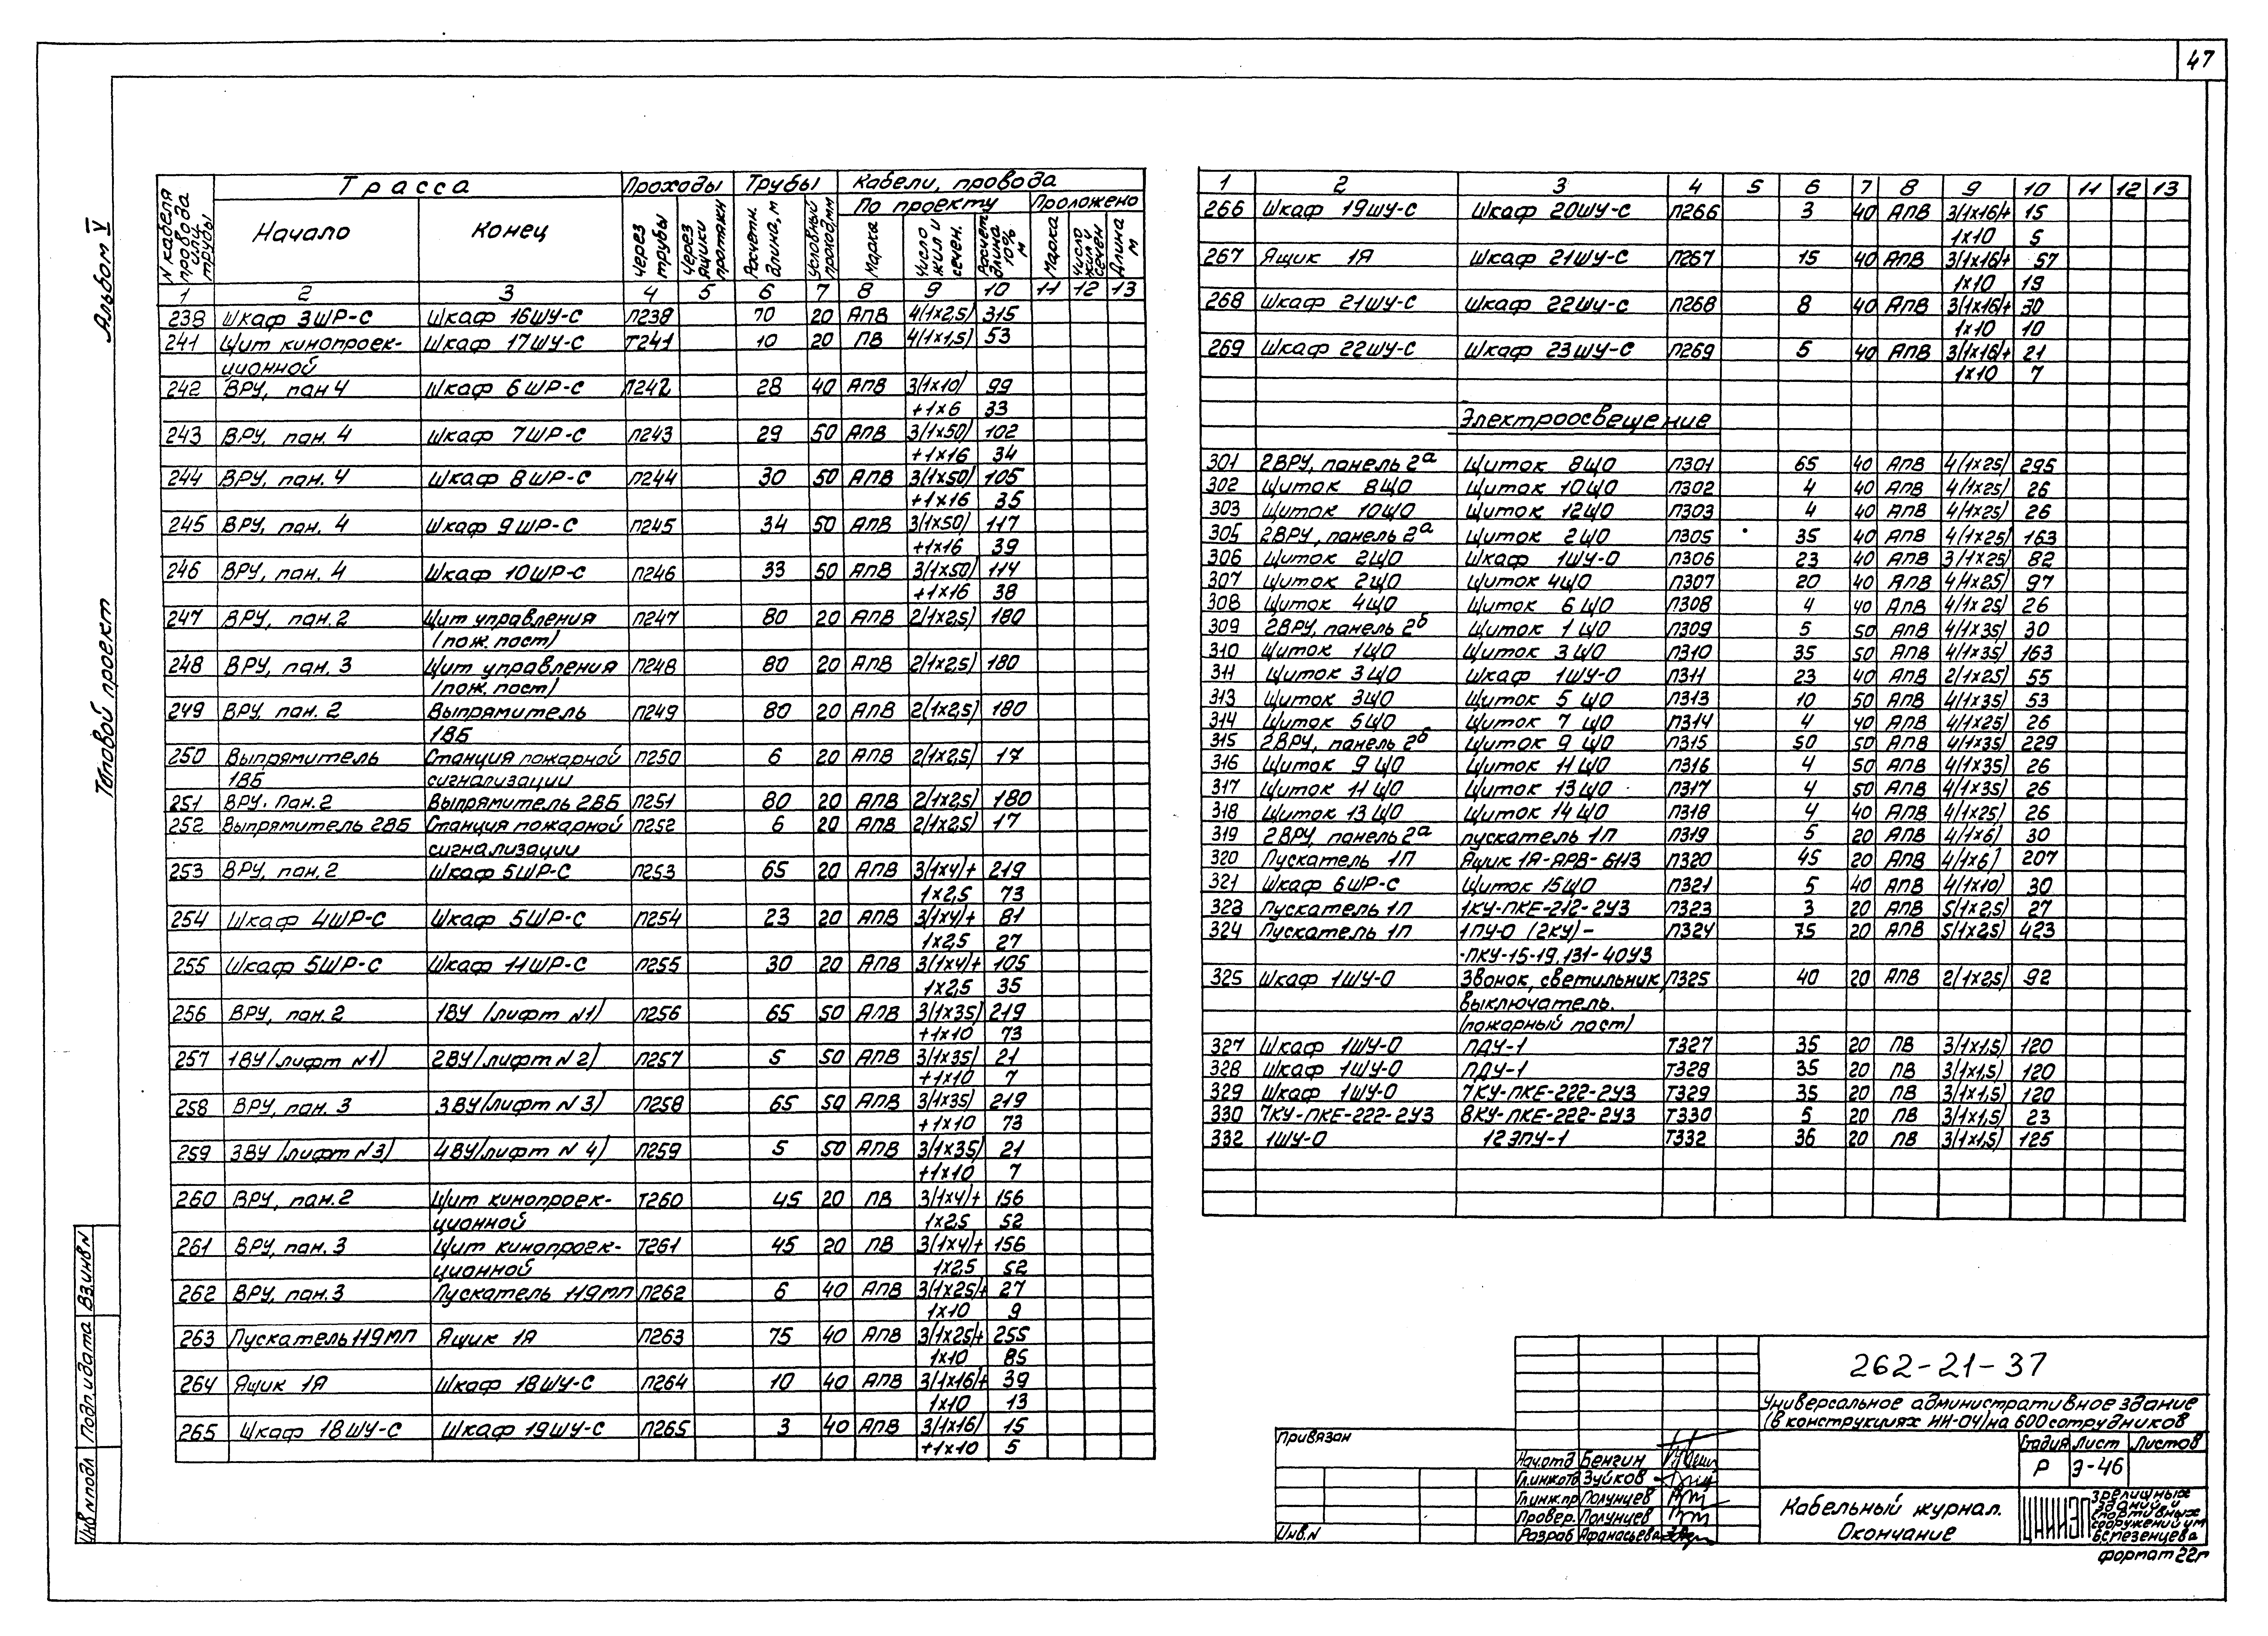 47
Альбом V
Типовой проект
N кабеля провода или трубы | Трасса | Проходы | Трубы | Кабели, провода
Начало | Конец | Через трубы | Через ящики протяжн | Расчетн. длина, м | Условный проход, мм | По проекту | Проложено
Марка | Число жил и сечен. | Расчет длина 10% м | Марка | Число жил и сечен | Длина м
1 2 3 4 5 6 7 8 9 10 11 12 13
238 Шкаф 3ШР-С Шкаф 16ШУ-С П238 70 20 АПВ 4(1х2,5) 315
241 Щит кинопроек- Шкаф 17ШУ-С Т241 10 20 ПВ 4(1х1,5) 53
ционной
242 ВРУ, пан 4 Шкаф 6ШР-С П242 28 40 АПВ 3(1х10) 99
+1х6 33
243 ВРУ, пан. 4 Шкаф 7ШР-С П243 29 50 АПВ 3(1х50) 102
+1х16 34
244 ВРУ, пан. 4 Шкаф 8ШР-С П244 30 50 АПВ 3(1х50) 105
+1х16 35
245 ВРУ, пан. 4 Шкаф 9ШР-С П245 34 50 АПВ 3(1х50) 117
+1х16 39
246 ВРУ, пан. 4 Шкаф 10ШР-С П246 33 50 АПВ 3(1х50) 114
+1х16 38
247 ВРУ, пан. 2 Щит управления П247 80 20 АПВ 2(1х2,5) 180
(пож. пост)
248 ВРУ, пан. 3 Щит управления П248 80 20 АПВ 2(1х2,5) 180
(пож. пост)
249 ВРУ, пан. 2 Выпрямитель П249 80 20 АПВ 2(1х2,5) 180
1ВБ
250 Выпрямитель Станция пожарной П250 6 20 АПВ 2(1х2,5) 17
1ВБ сигнализации
251 ВРУ. Пан. 2 Выпрямитель 2ВБ П251 80 20 АПВ 2(1х2,5) 180
252 Выпрямитель 2ВБ Станция пожарной П252 6 20 АПВ 2(1х2,5) 17
сигнализации
253 ВРУ, пан. 2 Шкаф 5ШР-С П253 65 20 АПВ 3(1х4)+ 219
1х2,5 73
254 Шкаф 4ШР-С Шкаф 5ШР-С П254 23 20 АПВ 3(1х4)+ 81
1х2,5 27
255 Шкаф 5ШР-С Шкаф 11ШР-С П255 30 20 АПВ 3(1х4)+ 105
1х2,5 35
256 ВРУ, пан. 2 1ВУ (лифт N1) П256 65 50 АПВ 3(1х35) 219
+1х10 73
257 1ВУ(лифт N1) 2ВУ(лифт N 2) П257 5 50 АПВ 3(1х35) 21
+1х10 7
258 ВРУ, пан. 3 3ВУ(лифт N 3) П258 65 50 АПВ 3(1х35) 219
+1х10 73
259 3ВУ (лифт N3) 4ВУ(лифт N 4) П259 5 50 АПВ 3(1х35) 21
+1х10 7
260 ВРУ, пан. 2 Щит кинопроек- Т260 45 20 ПВ 3(1х4)+ 156
ционной 1х2,5 52
261 ВРУ, пан. 3 Щит кинопроек- Т261 45 20 ПВ 3(1х4)+ 156
ционной 1х2,5 52
262 ВРУ, пан. 3 Пускатель 119МП П262 6 40 АПВ 3(1х25)+ 27
1х10 9
263 Пускатель 119МП Ящик 1Я П263 75 40 АПВ 3(1х25)+ 255
1х10 85
264 Ящик 1Я Шкаф 18ШУ-С П264 10 40 АПВ 3(1х16)+ 39
1х10 13
265 Шкаф 18ШУ-С Шкаф 19ШУ-С П265 3 40 АПВ 3(1х16) 15
+1х10 5
1 2 3 4 5 6 7 8 9 10 11 12 13
266 Шкаф 19ШУ-С Шкаф 20ШУ-С П266 3 40 АПВ 3(1х16)+ 15
1х10 5
267 Ящик 1Я Шкаф 21ШУ-С П267 15 40 АПВ 3(1х16)+ 57
1х10 19
268 Шкаф 21ШУ-С Шкаф 22ШУ-С П268 8 40 АПВ 3(1х16)+ 30
1х10 10
269 Шкаф 22ШУ-С Шкаф 23ШУ-С П269 5 40 АПВ 3(1х16)+ 21
1х10 7
Электроосвещение
301 2ВРУ, панель 2а Щиток 8ЩО П301 65 40 АПВ 4(1х25) 295
302 Щиток 8ЩО Щиток 10ЩО П302 4 40 АПВ 4(1х25) 26
303 Щиток 10ЩО Щиток 12ЩО П303 4 40 АПВ 4(1х25) 26
305 2ВРУ, панель 2а Щиток 2ЩО П305 35 40 АПВ 4(1х25) 163
306 Щиток 2ЩО Шкаф 1ШУ-О П306 23 40 АПВ 3(1х25) 82
307 Щиток 2ЩО Щиток 4ЩО П307 20 40 АПВ 4(1х25) 97
308 Щиток 4ЩО Щиток 6 ЩО П308 4 40 АПВ 4(1х25) 26
309 2ВРУ, панель 2б Щиток 1 ЩО П309 5 50 АПВ 4(1х35) 30
310 Щиток 1ЩО Щиток 3 ЩО П310 35 50 АПВ 4(1х35) 163
311 Щиток 3ЩО Шкаф 1ШУ-О П311 23 40 АПВ 2(1х25) 55
313 Щиток 3ЩО Щиток 5 ЩО П313 10 50 АПВ 4(1х35) 53
314 Щиток 5ЩО Щиток 7 ЩО П314 4 40 АПВ 4(1х25) 26
315 2ВРУ, панель 2б Щиток 9 ЩО П315 50 50 АПВ 4(1х35) 229
316 Щиток 9 ЩО Щиток 11 ЩО П316 4 50 АПВ 4(1х35) 26
317 Щиток 11 ЩО Щиток 13 ЩО П317 4 50 АПВ 4(1х35) 26
318 Щиток 13 ЩО Щиток 14 ЩО П318 4 40 АПВ 4(1х25) 26
319 2ВРУ, панель 2а пускатель 1П П319 5 20 АПВ 4(1х6) 30
320 Пускатель 1П Ящик 1Я-ЯРВ-6113 П320 45 20 АПВ 4(1х6) 207
321 Шкаф 6ШР-С Щиток 15ЩО П321 5 40 АПВ 4(1х10) 30
323 Пускатель 1П 1КУ-ПКЕ-212-2У3 П323 3 20 АПВ 5(1х2,5) 27
324 Пускатель 1П 1ПУ-О (2КУ)- П324 75 20 АПВ 5(1х2,5) 423
-ПКУ-15-19,131-40У3
325 Шкаф 1ШУ-О Звонок, светильник, П325 40 20 АПВ 2(1х2,5) 92
выключатель.
(пожарный пост)
327 Шкаф 1ШУ-О ПДУ-1 Т327 35 20 ПВ 3(1х1,5) 120
328 Шкаф 1ШУ-О ПДУ-1 Т328 35 20 ПВ 3(1х1,5) 120
329 Шкаф 1ШУ-О 7КУ-ПКЕ-222-2У3 Т329 35 20 ПВ 3(1х1,5) 120
330 7КУ-ПКЕ-222-2У3 8КУ-ПКЕ-222-2У3 Т330 5 20 ПВ 3(1х1,5) 23
332 1ШУ-О 12ЭПУ-1 Т332 36 20 ПВ 3(1х1,5) 125
Инв N подл Подп. и дата Вз. инв N
Привязан
Инв. N
Нач. отд Бенгин
Гл. инж. отд Зуйков
Гл. инж. пр Полунцев
Провер. Полунцев
Разраб Афанасьева
262-21-37
Универсальное административное здание
(в конструкциях ИИ-04) на 600 сотрудников
Стадия Лист Листов
Р Э-46
Кабельный журнал.
Окончание
ЦНИИЭП зрелищных
зданий и
спортивных
сооружений им
Б.С. Мезенцева
формат 22г